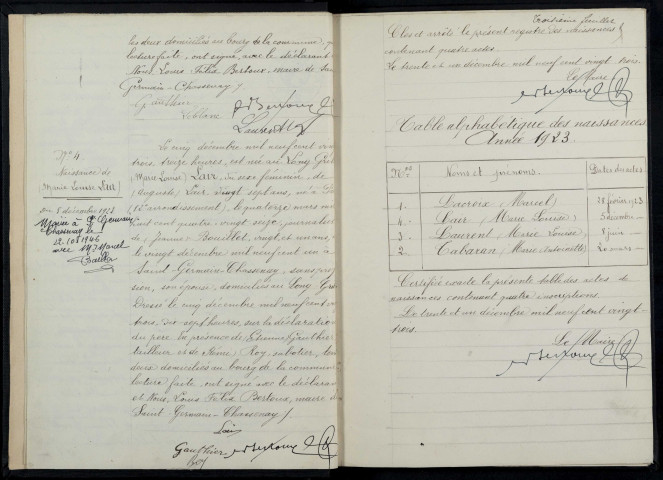 les deux domiciliés au bourg de la commune, qui
lecture faite, ont signé, avec le déclarant
Nous, Louis Félix Bertoux, maire de Saint
Germain-Chassenay
Leblanc
Laurent
N° 4
Naissance de
Marie Louise
du 5 décembre 1923
Mariée à St Germain
Chassenay le
12 1946
avec Marcel
Le cinq décembre mil neuf cent vingt
trois, treize heures, est née au Long
Marie Louise, du sexe féminin, de
Auguste, vingt sept ans, né à
arrondissement), le quatorze mars mil
huit cent quatre vingt seize, journalier
de Jeanne Bouillot, vingt et un ans,
le vingt décembre mil neuf cent un à
Saint Germain Chassenay, sans profes
sion, son épouse, domiciliés au Long
Dressé le cinq décembre mil neuf cent vingt
trois, dix sept heures, sur la déclaration
du père. En présence de Etienne Gauthier
tailleur, et de Roy, sabotier, tous
deux domiciliés au bourg de la commune
lecture faite, ont signé avec le déclarant
et Nous, Louis Félix Bertoux, maire de
Saint Germain-Chassenay
Gauthier
Roy
Troisième feuillet
Clos et arrêté le présent registre des naissances
contenant quatre actes.
Le trente et un décembre mil neuf cent vingt trois.
Le Maire
Table alphabétique des naissances
Année 1923.
Nos Noms et prénoms. Dates des actes
1. Lacroix (Marcel) 18 février 1923
4. (Marie Louise) 5 décembre -
3. Laurent (Marie Louise) 8 juin -
2. Tabaran (Marie Antoinette) 20 mars -
Certifiée exacte la présente table des actes de
naissances contenant quatre inscriptions.
Le trente et un décembre mil neuf cent vingt-
trois.
Le Maire